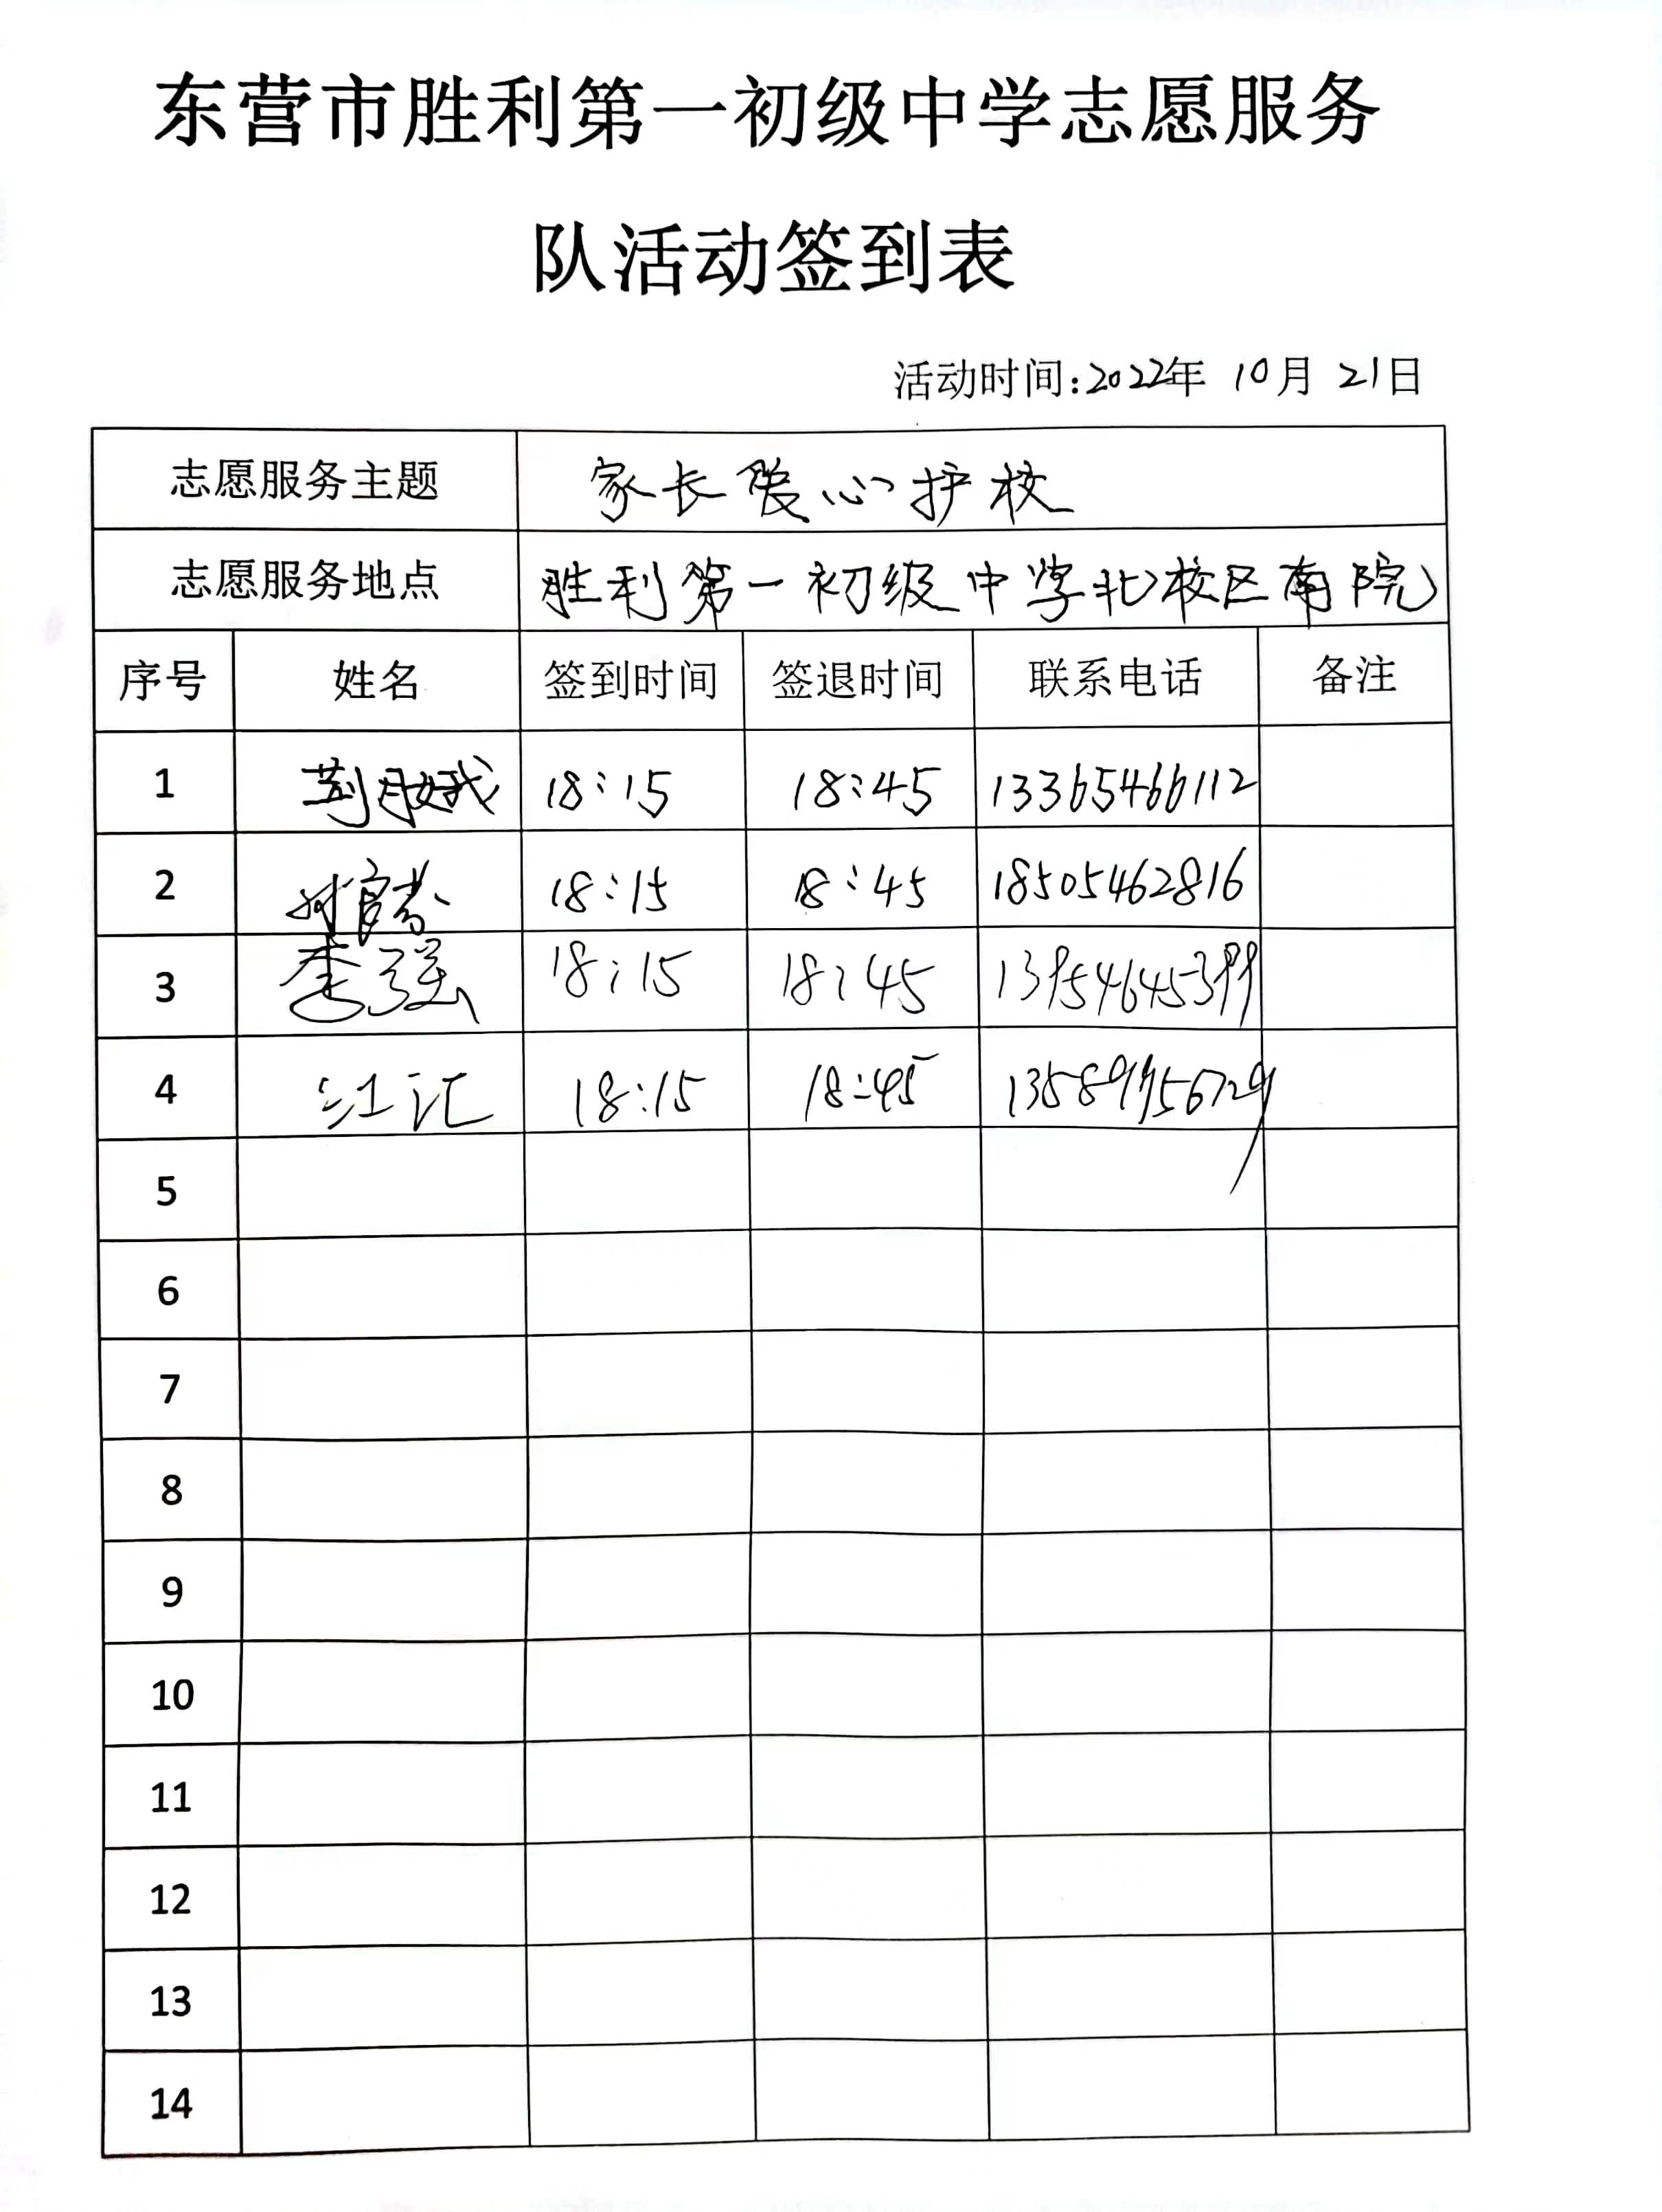 东营市胜利第一初级中学志愿服务
队活动签到表
活动时间:2022年 10月 21日
志愿服务主题 家长爱心护校
志愿服务地点 胜利第一初级中学北校区南院
序号 姓名 签到时间 签退时间 联系电话 备注
1 荆月娥 18:15 18:45 13365466112
2 18:15 18:45 18505462816
3 李强 18:15 18:45 13954645399
4 江汇 18:15 18:45 13589956729
5
6
7
8
9
10
11
12
13
14